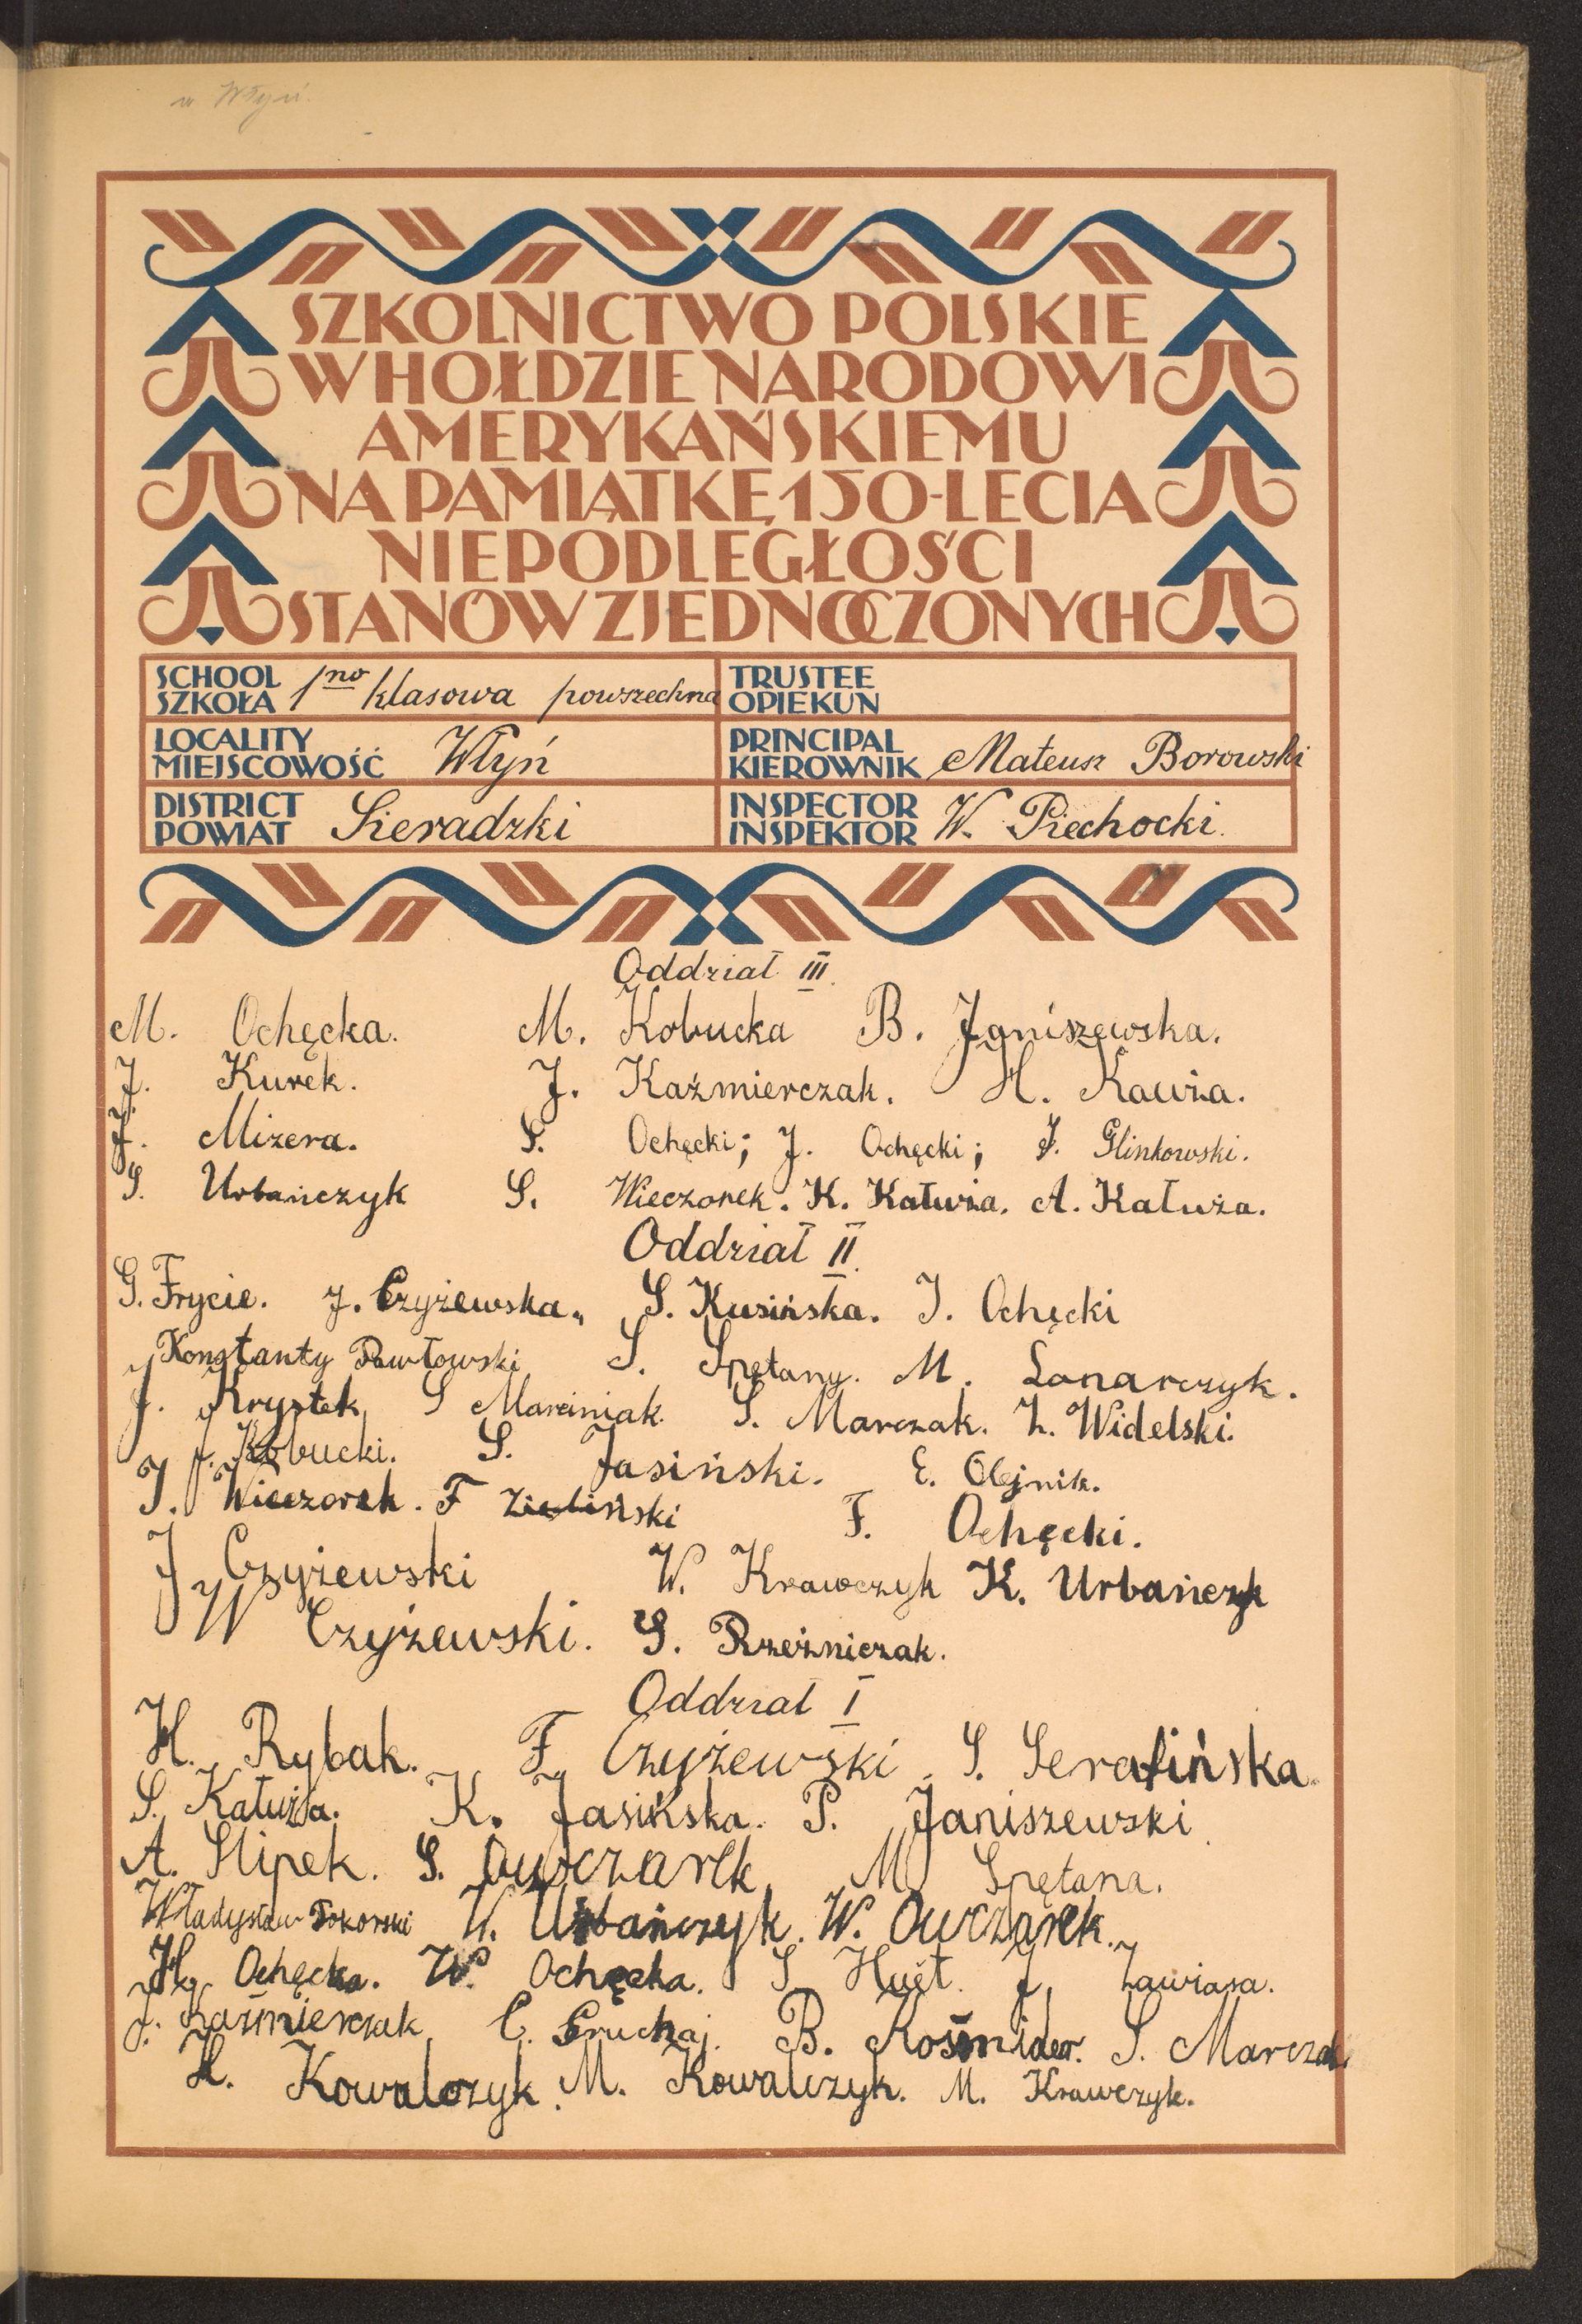 w Włyń.
SZKOLNICTWO POLSKIE
W HOŁDZIE NARODOWI
AMERYKAŃSKIEMU
NA PAMIĄTKĘ 150-LECIA
NIEPODLEGŁOŚCI
STANÓW ZJEDNOCZONYCH
SCHOOL SZKOŁA 1no klasowa powszechna TRUSTEE OPIEKUN
LOCALITY MIEJSCOWOŚĆ Włyń PRINCIPAL KIEROWNIK Mateusz Borowski
DISTRICT POWIAT Sieradzki INSPECTOR INSPEKTOR W. Piechocki.
Oddział III.
M. Ochęcka. M. Kobucka B. Janiszewska.
J. Kurek. J. Kaźmierczak. H. Kawża.
J. Mizera. S. Ochęcki; J. Ochęcki; J. Glinkowski.
S. Urbańczyk S. Wieczorek. K. Kałuża. A. Kałuża.
Oddział II.
G. Frycie. J. Czyżewska. S. Kusińska. J. Ochęcki
Konstanty Pawłowski S. Spętany. M. Lonarczyk.
J. Krystek S Marciniak. S. Marczak. Z. Widelski.
J. Kobucki. S. Jasiński. E. Olejnik.
J. Wieczorek. F Zieliński F. Ochęcki.
J Czyżewski W. Krawczyk K. Urbańczyk
W Czyżewski. S. Rzeźniczak.
Oddział I
H. Rybak. F Czyżewski. S. Serafińska.
S. Kałuża. K. Jasińska. P. Janiszewski.
A. Slipek. S. Owczarek M Spętana.
Władysław Sokorski W. Urbańczyk. W. Owczarek.
H. Ochęcka. W. Ochęcka. S. Huět. J. Zawiasa.
J. Kaźmierczak C. Gruchaj. B. Kośmider. S. Marczak
H. Kowalczyk. M. Kowalczyk. M. Krawczyk.